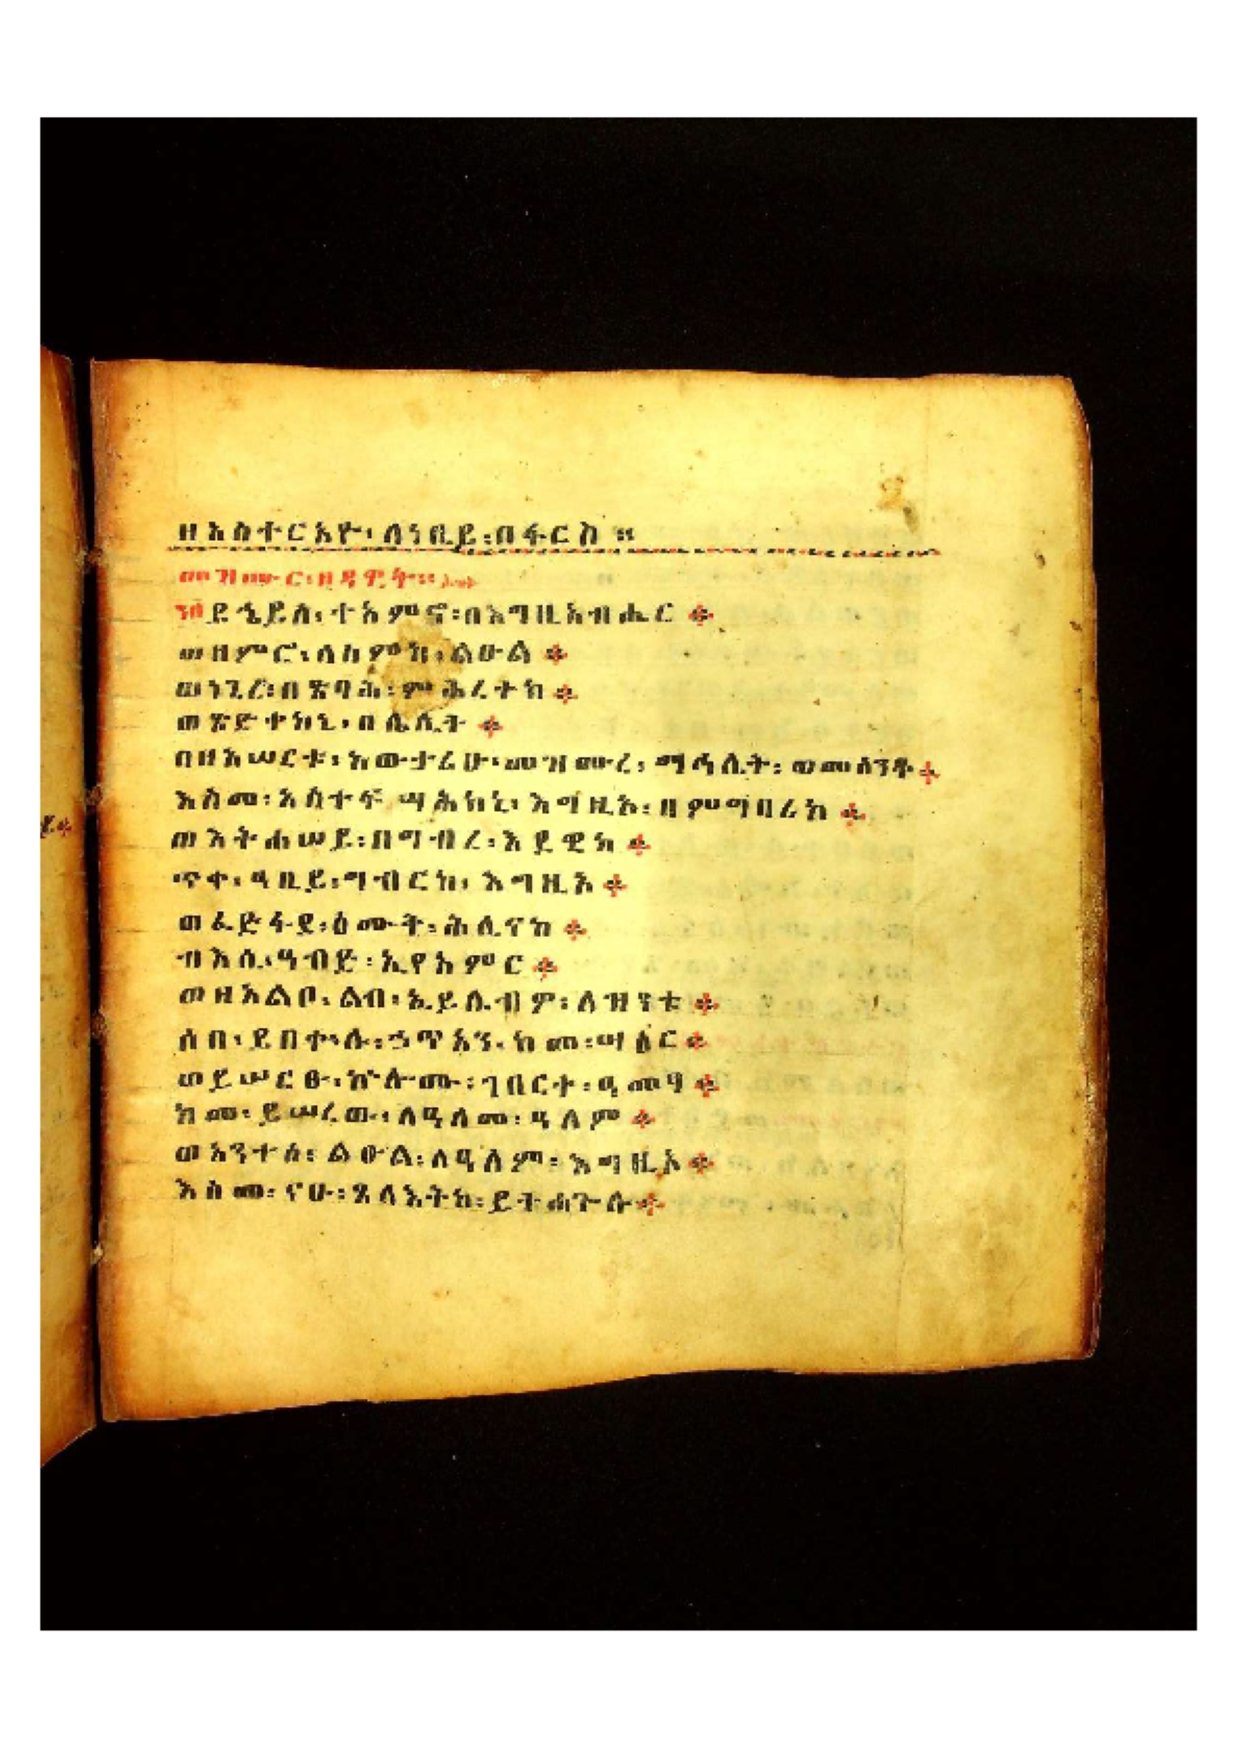 ዘአስተርአዮ፡ ለነቢይ፡ በፋርስ ።
መዝሙር፡ ዘዳዊት።
ይኄይስ፡ ተአምኖ፡ በእግዚአብሔር ፨
ወዘምሮ፡ ለስምከ፡ ልዑል ፨
ወነጊረ፡ በጽባሕ፡ ምሕረተከ ፨
ወጽድቀከኒ፡ በሌሊት ፨
በዘአሠርቱ፡ አውታሪሁ፡ መዝሙረ፡ ማኅሌት፡ ወመሰንቆ ፨
እስመ፡ አስተፍሣሕከኒ፡ እግዚኦ፡ በምግባሪከ ፨
ወእትሐሠይ፡ በግብረ፡ እደዊከ ፨
ጥቀ፡ ዓቢይ፡ ግብርከ፡ እግዚኦ ፨
ወፈድፋደ፡ ዕሙት፡ ሕሊናከ ፨
ብእሲ፡ ዓብድ፡ ኢየአምር ፨
ወዘአልቦ፡ ልብ፡ ኢይሌብዎ፡ ለዝንቱ ፨
ሶበ፡ ይበቍሉ፡ ኃጥአን፡ ከመ፡ ሣዕር ፨
ወይሠርፁ፡ ኵሎሙ፡ ገበርተ፡ ዓመፃ ፨
ከመ፡ ይሠረዉ፡ ለዓለመ፡ ዓለም ፨
ወአንተሰ፡ ልዑል፡ ለዓለም፡ እግዚኦ ፨
እስመ፡ ናሁ፡ ጸላእትከ፡ ይትሐጐሉ ፨